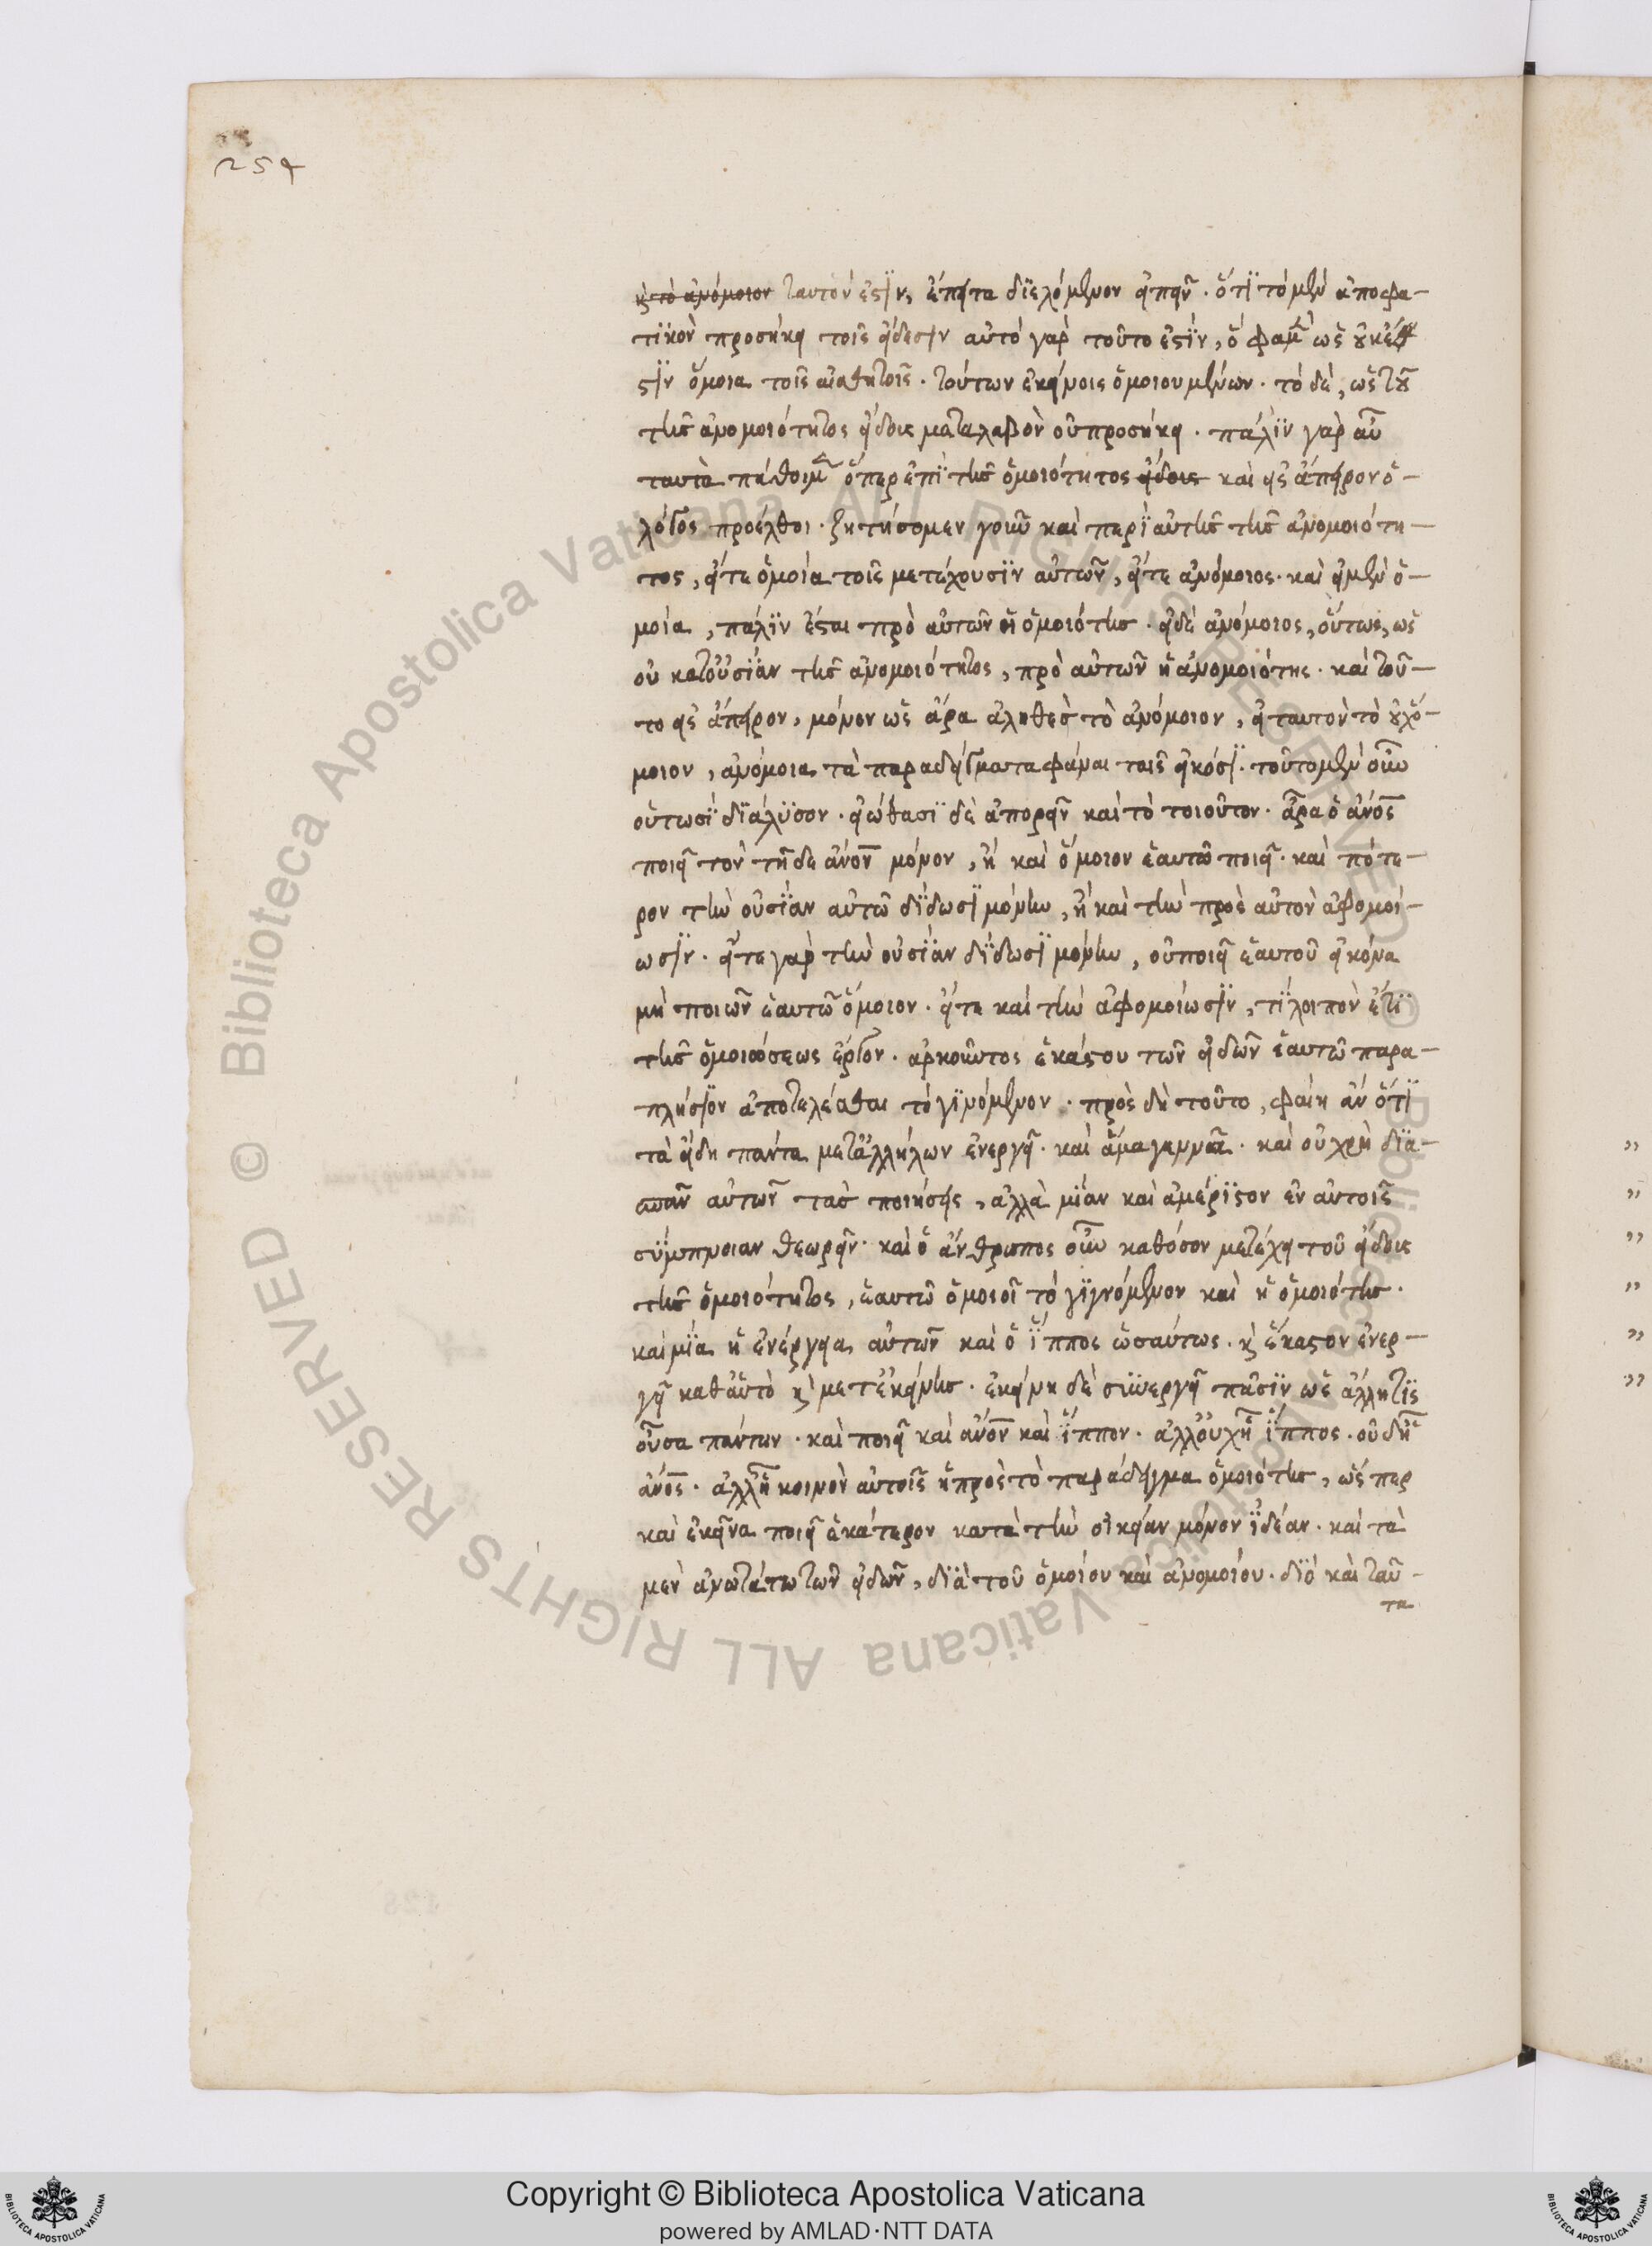 254
κ̀ τὸ ἀνόμοιον ταυτόν ἐστϊν, ἔπειτα διελόμενον εἰπεῖν. ὅτϊ τὸ μὲν ἀποφα-
τϊκὸν προσήκει τοῖς εἴδεσιν αὐτὸ γὰρ τοῦτο ἐστϊν, ὅ φαμὲν ὡς οὐκ ἔ
στϊν ὅμοια τοῖς αἰσθητοῖς. τούτων ἐκείνοις ὁμοιουμένων. τὸ δὲ, ὡς τοῦ
τῆς ἀνομοιότητος εἴδους μεταλαβὸν οὐ προσήκει. πάλϊν γὰρ αὖ
ταυτὰ πάθοιμεν ὅπερ ἐπὶ τῆς ὁμοιότητος εἴδους καὶ εἰς ἄπειρον ὁ-
λόγος προέλθοι. ζητήσομεν γοῦν καὶ περὶ αὐτῆς τῆς ἀνομοιότη-
τος, εἴτε ὁμοία τοῖς μετέχουσϊν αὐτῶν, εἴτε ἀνόμοιος. καὶ εἰ μὲν ὁ-
μοία, πάλϊν ἔσται πρὸ αὐτῶν ἡ ὁμοιότης. εἰ δὲ ἀνόμοιος, οὕτως, ὡς
οὐ κατ' οὐσίαν τῆς ἀνομοιότητος, πρὸ αὐτῶν ἡ ἀνομοιότης. καὶ τοῦ-
το εἰς ἄπειρον, μόνον ὡς ἄρα ἀληθὲς τὸ ἀνόμοιον, εἰ ταυτὸν τὸ οὐχ ὅ-
μοιον, ἀνόμοια τὰ παραδείγματα φάναι ταῖς εἰκόσϊ. τοῦτο μὲν οὖν
οὑτωσὶ διάλυσον. εἰώθασϊ δὲ ἀπορεῖν καὶ τὸ τοιοῦτον. ἆρα ὁ ἄνος
ποιεῖ τὸν τῇδε ἄνον μόνον, ἢ καὶ ὅμοιον ἑαυτῶ ποιεῖ. καὶ πότε-
ρον τὴν οὐσίαν αὐτῶ δίδωσϊ μόνην, ἢ καὶ τὴν πρὸς αὐτὸν ἀφομοί-
ωσϊν. εἴτε γὰρ τὴν οὐσίαν δίδωσϊ μόνην, οὐ ποιεῖ ἑαυτοῦ εἰκόνα
μὴ ποιῶν ἑαυτῶ ὅμοιον. εἴτε καὶ τὴν ἀφομοίωσϊν, τί λοιπὸν ἔτϊ
τῆς ὁμοιώσεως ἔργον. ἀρκοῦντος ἑκάστου τῶν εἰδῶν ἑαυτῶ παρα-
πλήσϊον ἀποτελέσθαι τὸ γϊνόμενον. πρὸς δὴ τοῦτο, φαίη ἄν ὅτϊ
τὰ εἴδη πάντα μετ' ἀλλήλων ἐνεργεῖ. καὶ ἅμα γεννᾶ. καὶ οὐ χρὴ δϊα-
σπᾶν αὐτῶν τὰς ποιήσεις, ἀλλὰ μίαν καὶ ἀμέρϊστον ἐν αὐτοῖς
σύμπνοιαν θεωρεῖν. καὶ ὁ ἄνθρωπος οὖν καθόσον μετέχει τοῦ εἴδους
τῆς ὁμοιότητος, ἑαυτῶ ὁμοιοῖ τὸ γϊγνόμενον καὶ ἡ ὁμοιότης.
καὶ μία ἡ ἐνέργεια αὐτῶν καὶ ὁ ἵππος ὡσαύτως. κ̀ ἕκαστον ἐνερ-
γεῖ καθ' αὑτὸ κ̀ μετ' ἐκείνης. ἐκείνη δὲ συνεργεῖ πᾶσϊν ὡς ἄλλη τϊς
οὖσα πάντων. καὶ ποιεῖ καὶ ἄνον καὶ ἵππον. ἀλλ' οὐχ ἧ ἵππος. οὐδ' ἧ
ἄνος. ἀλλ' ἧ κοινὸν αὐτοῖς ἡ πρὸς τὸ παράδειγμα ὁμοιότης, ὥσπερ
καὶ ἐκεῖνα ποιεῖ ἑκάτερον κατὰ τὴν οἰκείαν μόνον ἰδέαν. καὶ τὰ
μὲν ἀνωτάτω τῶν εἰδῶν, δϊὰ τοῦ ὁμοίου καὶ ἀνομοίου. δϊό καὶ ταῦ-
τα
Copyright © Biblioteca Apostolica Vaticana
powered by AMLAD·NTT DATA
© Biblioteca Apostolica Vaticana ALL RIGHTS RESERVED © Biblioteca Apostolica Vaticana ALL RIGHTS RESERVED